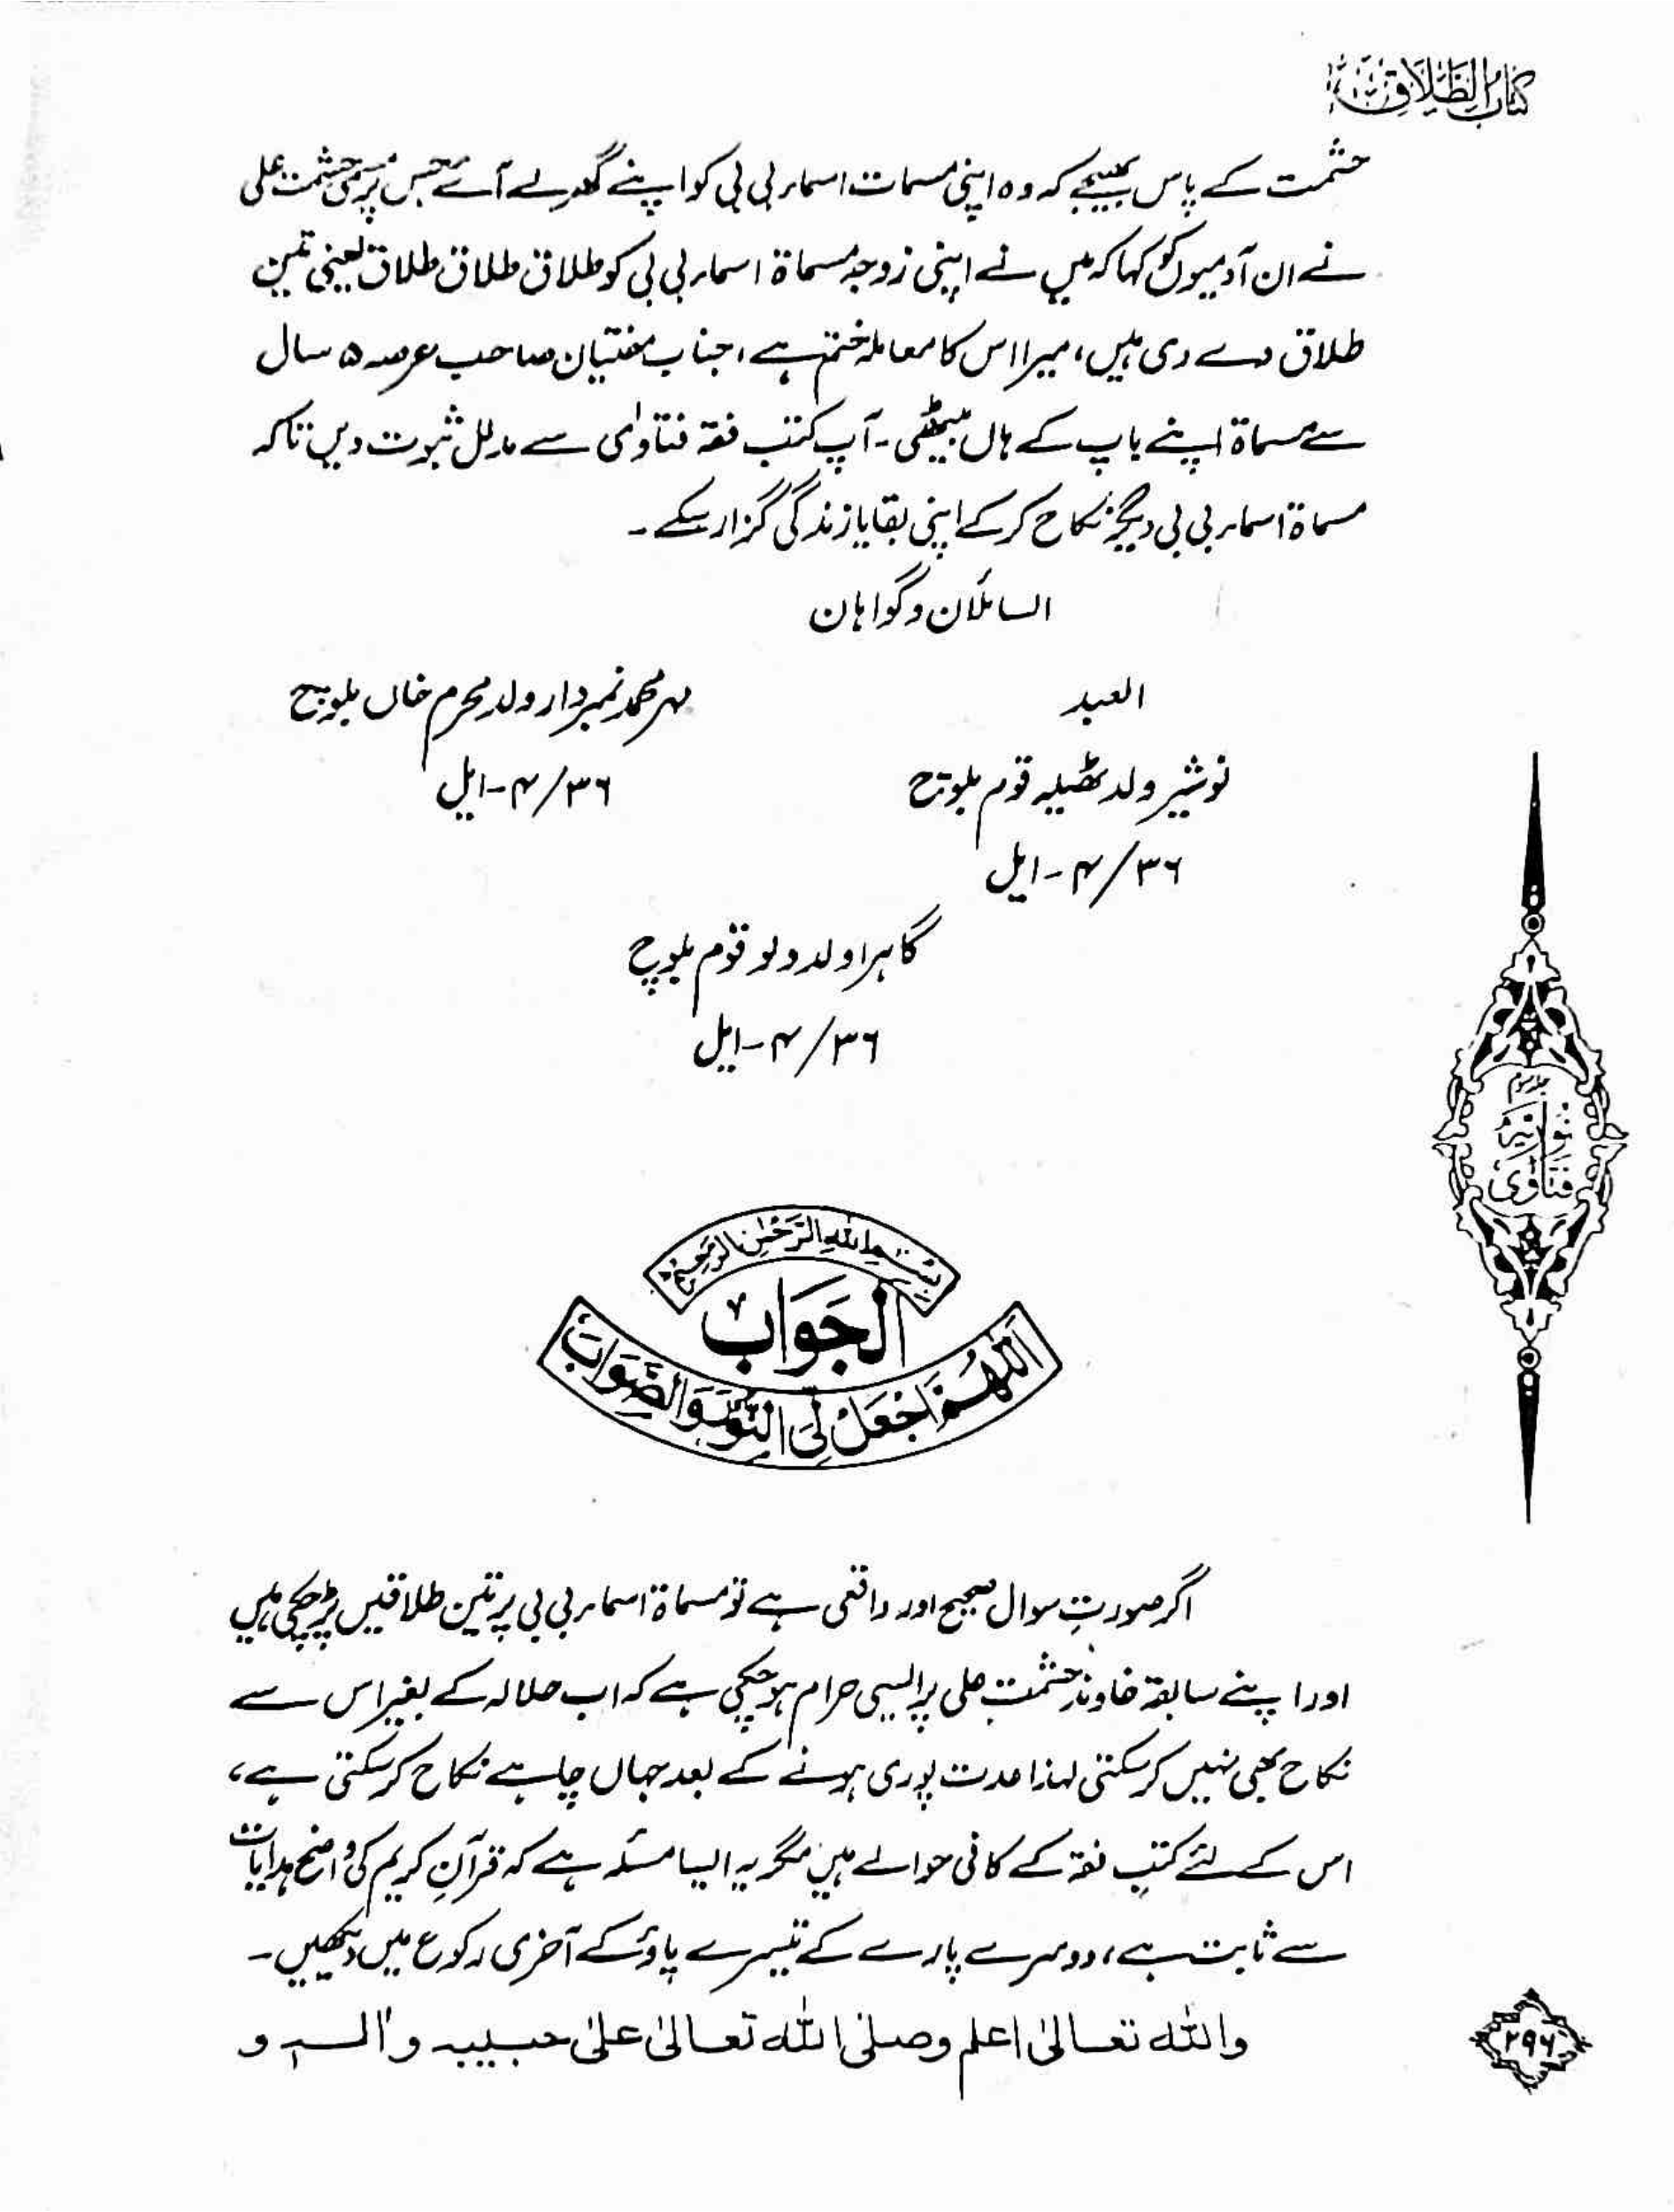 کتاب الطلاق
حشمت کے پاس بھیجے کہ وہ اپنی مسمات اسماء بی بی کو اپنے گھر لے آئے جس پر مسمی حشمت علی
نے ان آدمیوں کو کہا کہ میں نے اپنی زوجہ مسماۃ اسماء بی بی کو طلاق طلاق طلاق یعنی تین
طلاق دے دی ہیں، میرا اس کا معاملہ ختم ہے، جناب مفتیان صاحب عرصہ ۵ سال
سے مسماۃ اپنے باپ کے ہاں بیٹھی۔ آپ کتب فقہ فتاوٰی سے مدلل ثبوت دیں تاکہ
مسماۃ اسماء بی بی دیگر نکاح کر کے اپنی بقایا زندگی گزار سکے۔
السائلان و گواہان
العبد
نوشیر ولد ٹھیلہ قوم بلوچ
۳۶/۴-ایل
مہر محمد نمبردار ولد محرم خاں بلوچ
۳۶/۴-ایل
گاہرا ولد دلو قوم بلوچ
۳۶/۴-ایل
جلد سوم
نوریہ
فتاوٰی
بسم اللہ الرحمٰن الرحیم
الجَوَاب
اَللّٰهُمَّ اجْعَلْ لِیَ النُّوْرَ وَالصَّوَابَ
اگر صورتِ سوال صحیح اور واقعی ہے تو مسماۃ اسماء بی بی پر تین طلاقیں پڑ چکی ہیں
اور اپنے سابقہ خاوند حشمت علی پر ایسی حرام ہو چکی ہے کہ اب حلالہ کے بغیر اس سے
نکاح بھی نہیں کر سکتی لہذا عدت پوری ہونے کے بعد جہاں چاہے نکاح کر سکتی ہے،
اس کے لئے کتبِ فقہ کے کافی حوالے ہیں مگر یہ ایسا مسئلہ ہے کہ قرآنِ کریم کی واضح ہدایات
سے ثابت ہے، دوسرے پارے کے تیسرے پاؤ کے آخری رکوع میں دیکھیں۔
واللہ تعالیٰ اعلم وصلی اللہ تعالیٰ علیٰ حبیبہ واٰلہ و
۲۹۶